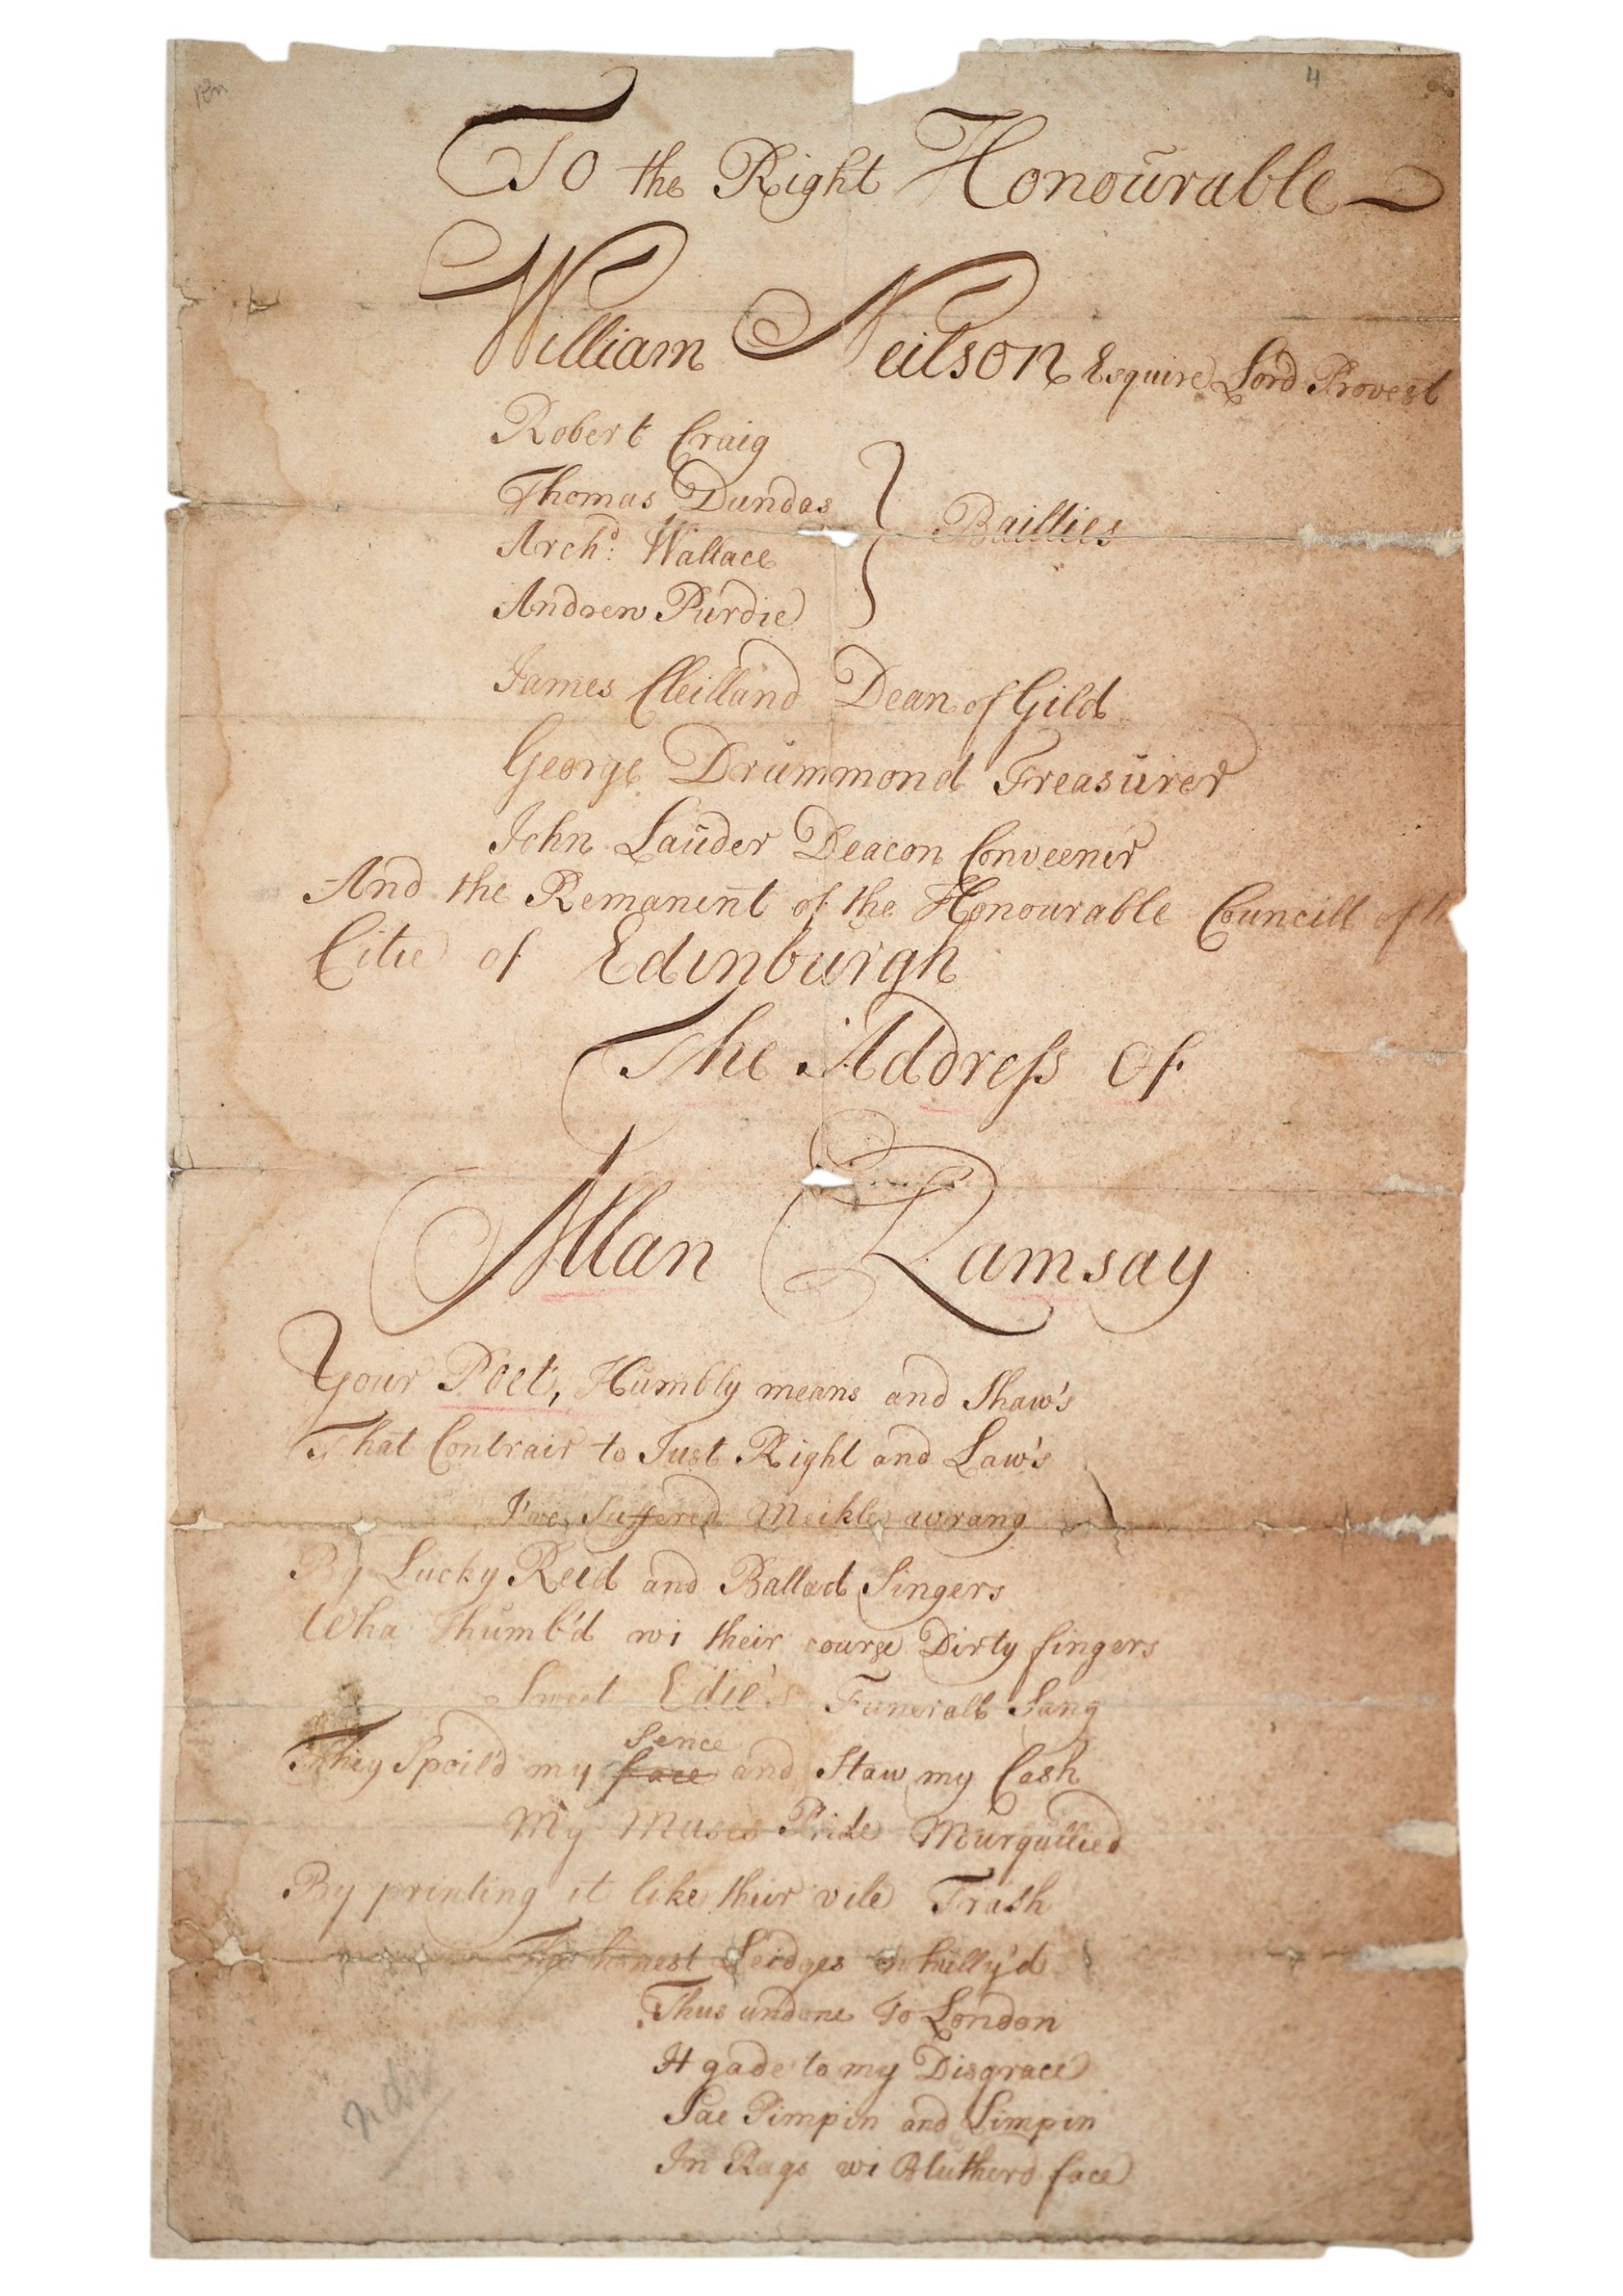 4
To the Right Honourable
William Neilson Esquire Lord Provest
Robert Craig
Thomas Dundas
Archd: Wallace
Baillies
Andrew Purdie
James Cleilland Dean of Gild
George Drummond Treasurer
John Lauder Deacon Conveener
And the Remanent of the Honourable Councill of
Citie of Edinburgh
The Address Of
Allan Ramsay
Your Poet, Humbly means and Shaw's
That Contrair to Just Right and Law's
I've Suffered Meikle wrang
By Lucky Reid and Ballad Singers
Wha Thumb'd wi their course Dirty fingers
Sweet Edie's Funerall Sang
They Spoil'd my face Sence and Staw my Cash
My Muses Pride Murgullied
By printing it like their vile Trash
The honest Leidges whully'd
Thus undone To London
It gade to my Disgrace
Sae Pimpin and Limpin
In Rags wi Blutherd face